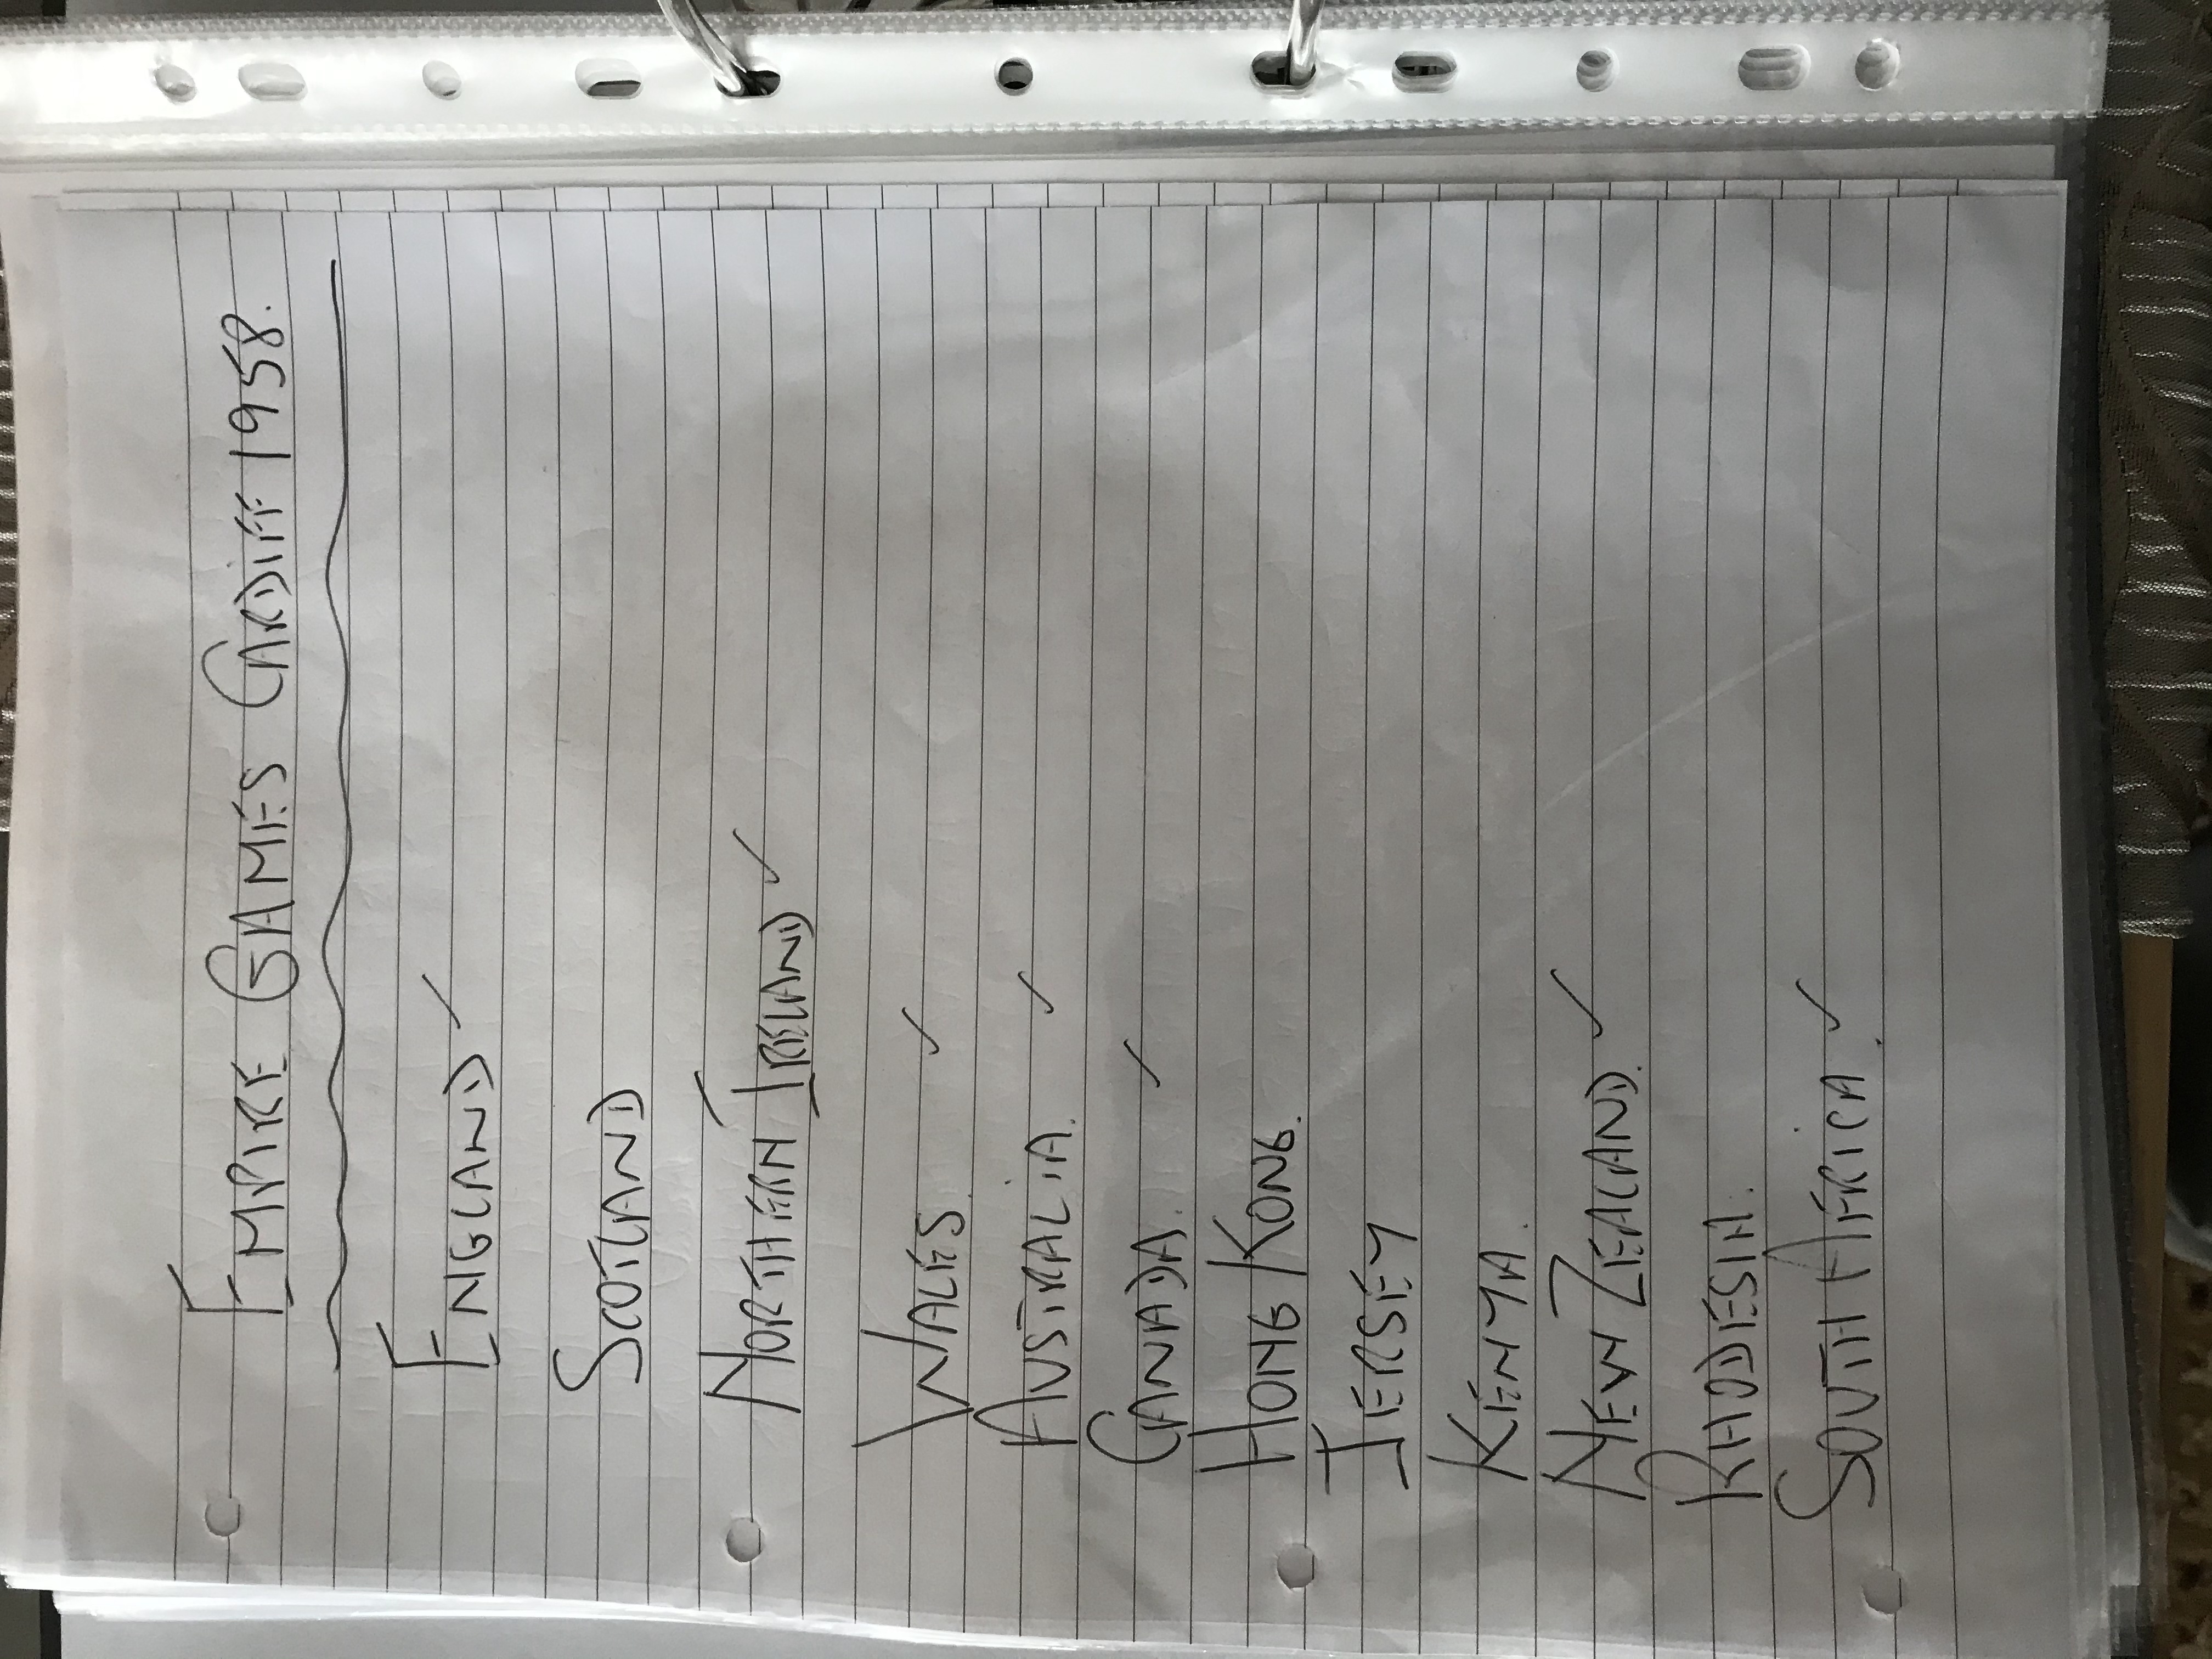 EMPIRE GAMES CARDIFF 1958.
ENGLAND ✓
SCOTLAND
NORTHERN IRELAND ✓
WALES ✓
AUSTRALIA. ✓
CANADA. ✓
HONG KONG.
JERSEY
KENYA.
NEW ZEALAND. ✓
RHODESIA.
SOUTH AFRICA. ✓